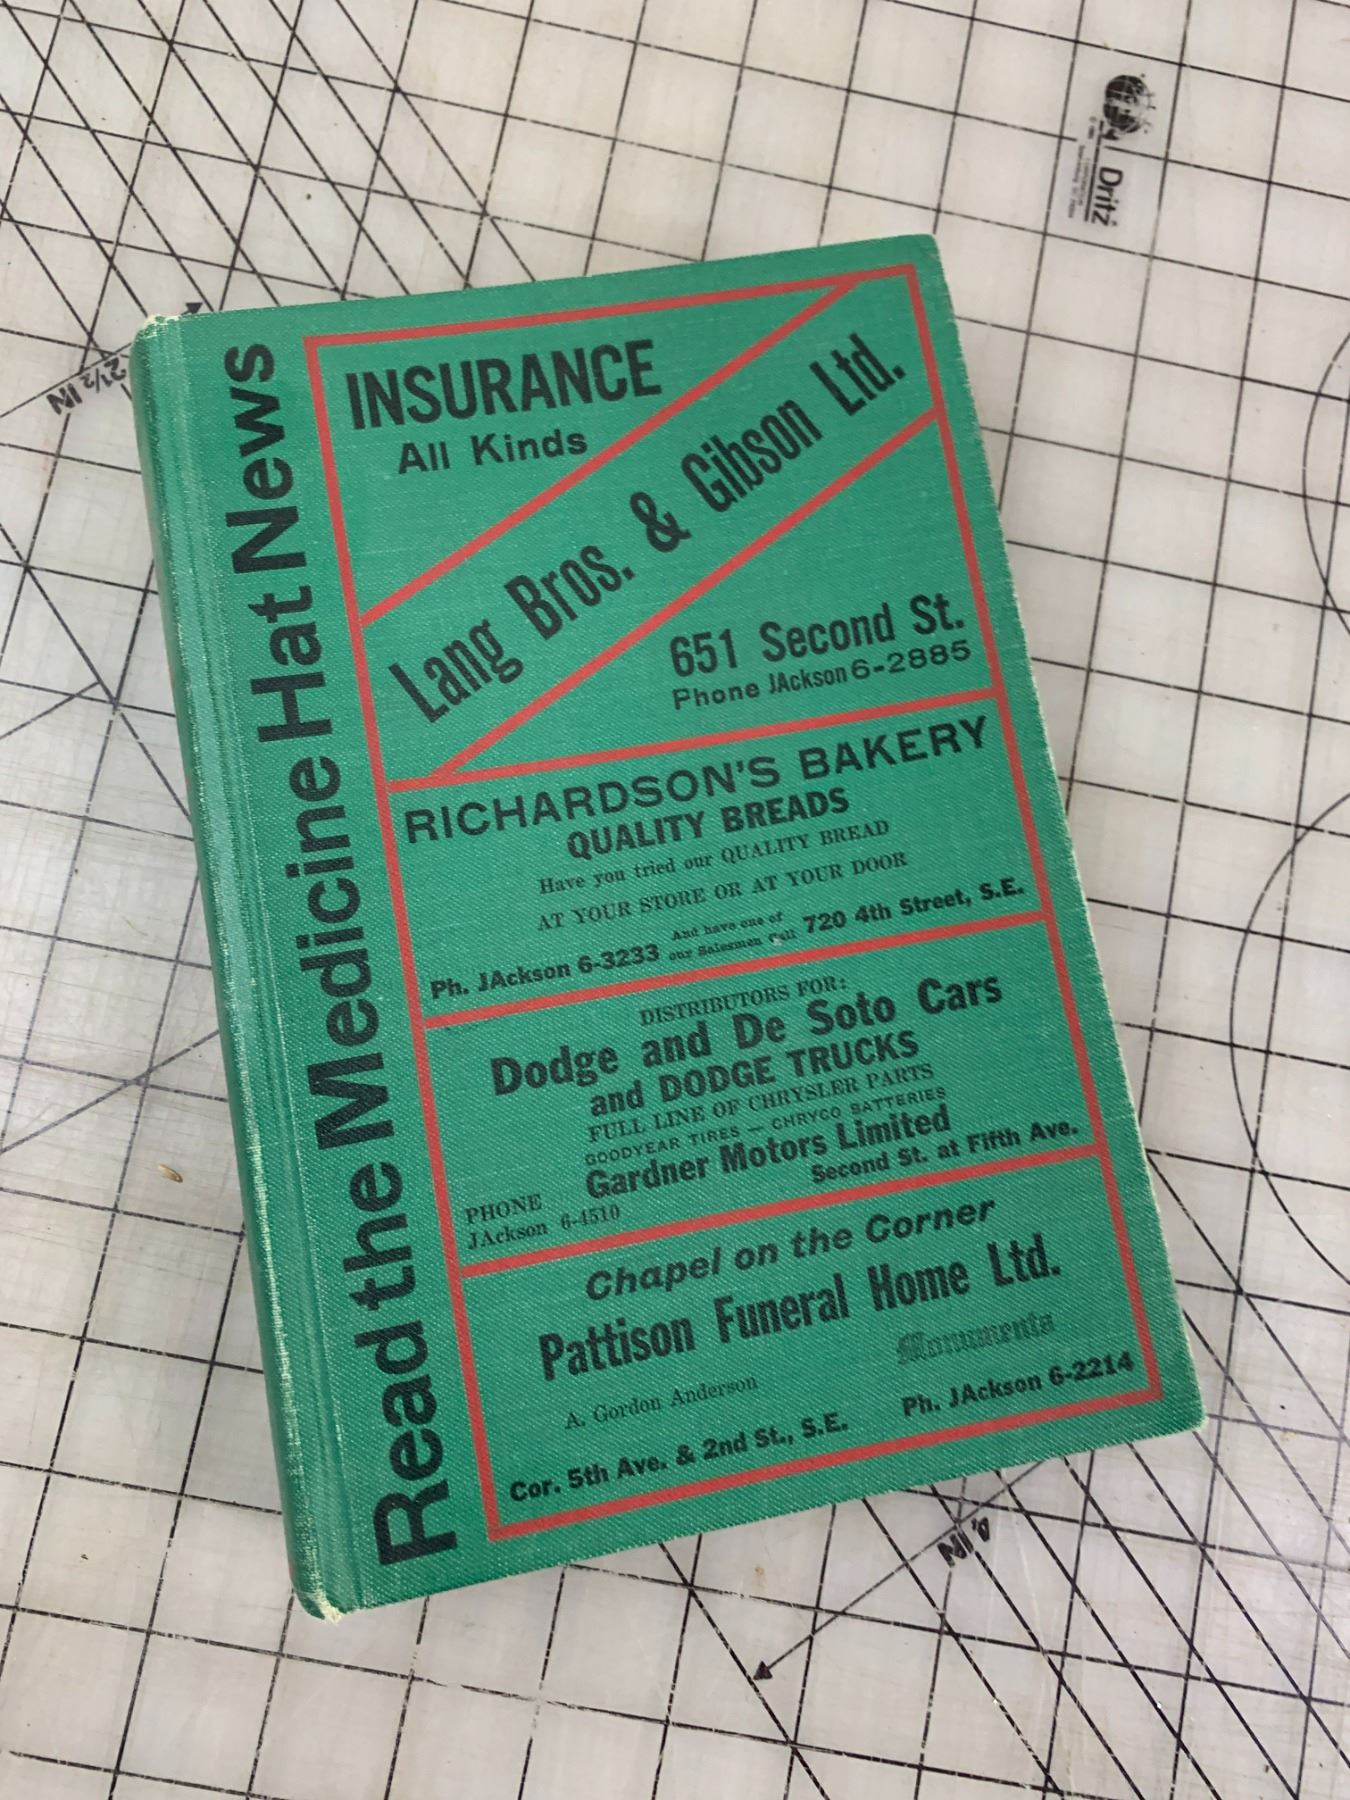 Read the Medicine Hat News
INSURANCE
All Kinds
Lang Bros. & Gibson Ltd.
651 Second St.
Phone JAckson 6-2885
RICHARDSON'S BAKERY
QUALITY BREADS
Have you tried our QUALITY BREAD
AT YOUR STORE OR AT YOUR DOOR
Ph. JAckson 6-3233
And have one of
our Salesmen Call
720 4th Street, S.E.
DISTRIBUTORS FOR:
Dodge and De Soto Cars
and DODGE TRUCKS
FULL LINE OF CHRYSLER PARTS
GOODYEAR TIRES — CHRYCO BATTERIES
Gardner Motors Limited
Second St. at Fifth Ave.
PHONE
JAckson 6-4510
Chapel on the Corner
Pattison Funeral Home Ltd.
Monuments
A. Gordon Anderson
Cor. 5th Ave. & 2nd St., S.E.
Ph. JAckson 6-2214
Dritz
2½ IN